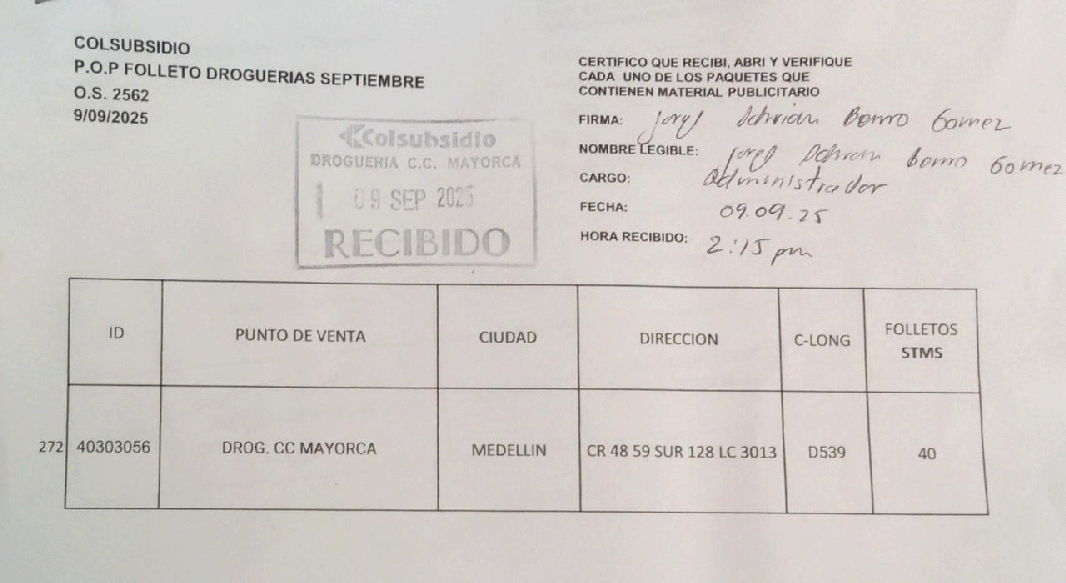 COLSUBSIDIO
P.O.P FOLLETO DROGUERIAS SEPTIEMBRE
O.S. 2562
9/09/2025
Colsubsidio
DROGUERIA C.C. MAYORCA
1 09 SEP 2025
RECIBIDO
CERTIFICO QUE RECIBI, ABRI Y VERIFIQUE
CADA UNO DE LOS PAQUETES QUE
CONTIENEN MATERIAL PUBLICITARIO
FIRMA: Gomez
NOMBRE LEGIBLE: Gomez
CARGO: Administrador
FECHA: 09.09.25
HORA RECIBIDO: 2:15 pm
ID PUNTO DE VENTA CIUDAD DIRECCION C-LONG FOLLETOS STMS
272 40303056 DROG. CC MAYORCA MEDELLIN CR 48 59 SUR 128 LC 3013 D539 40